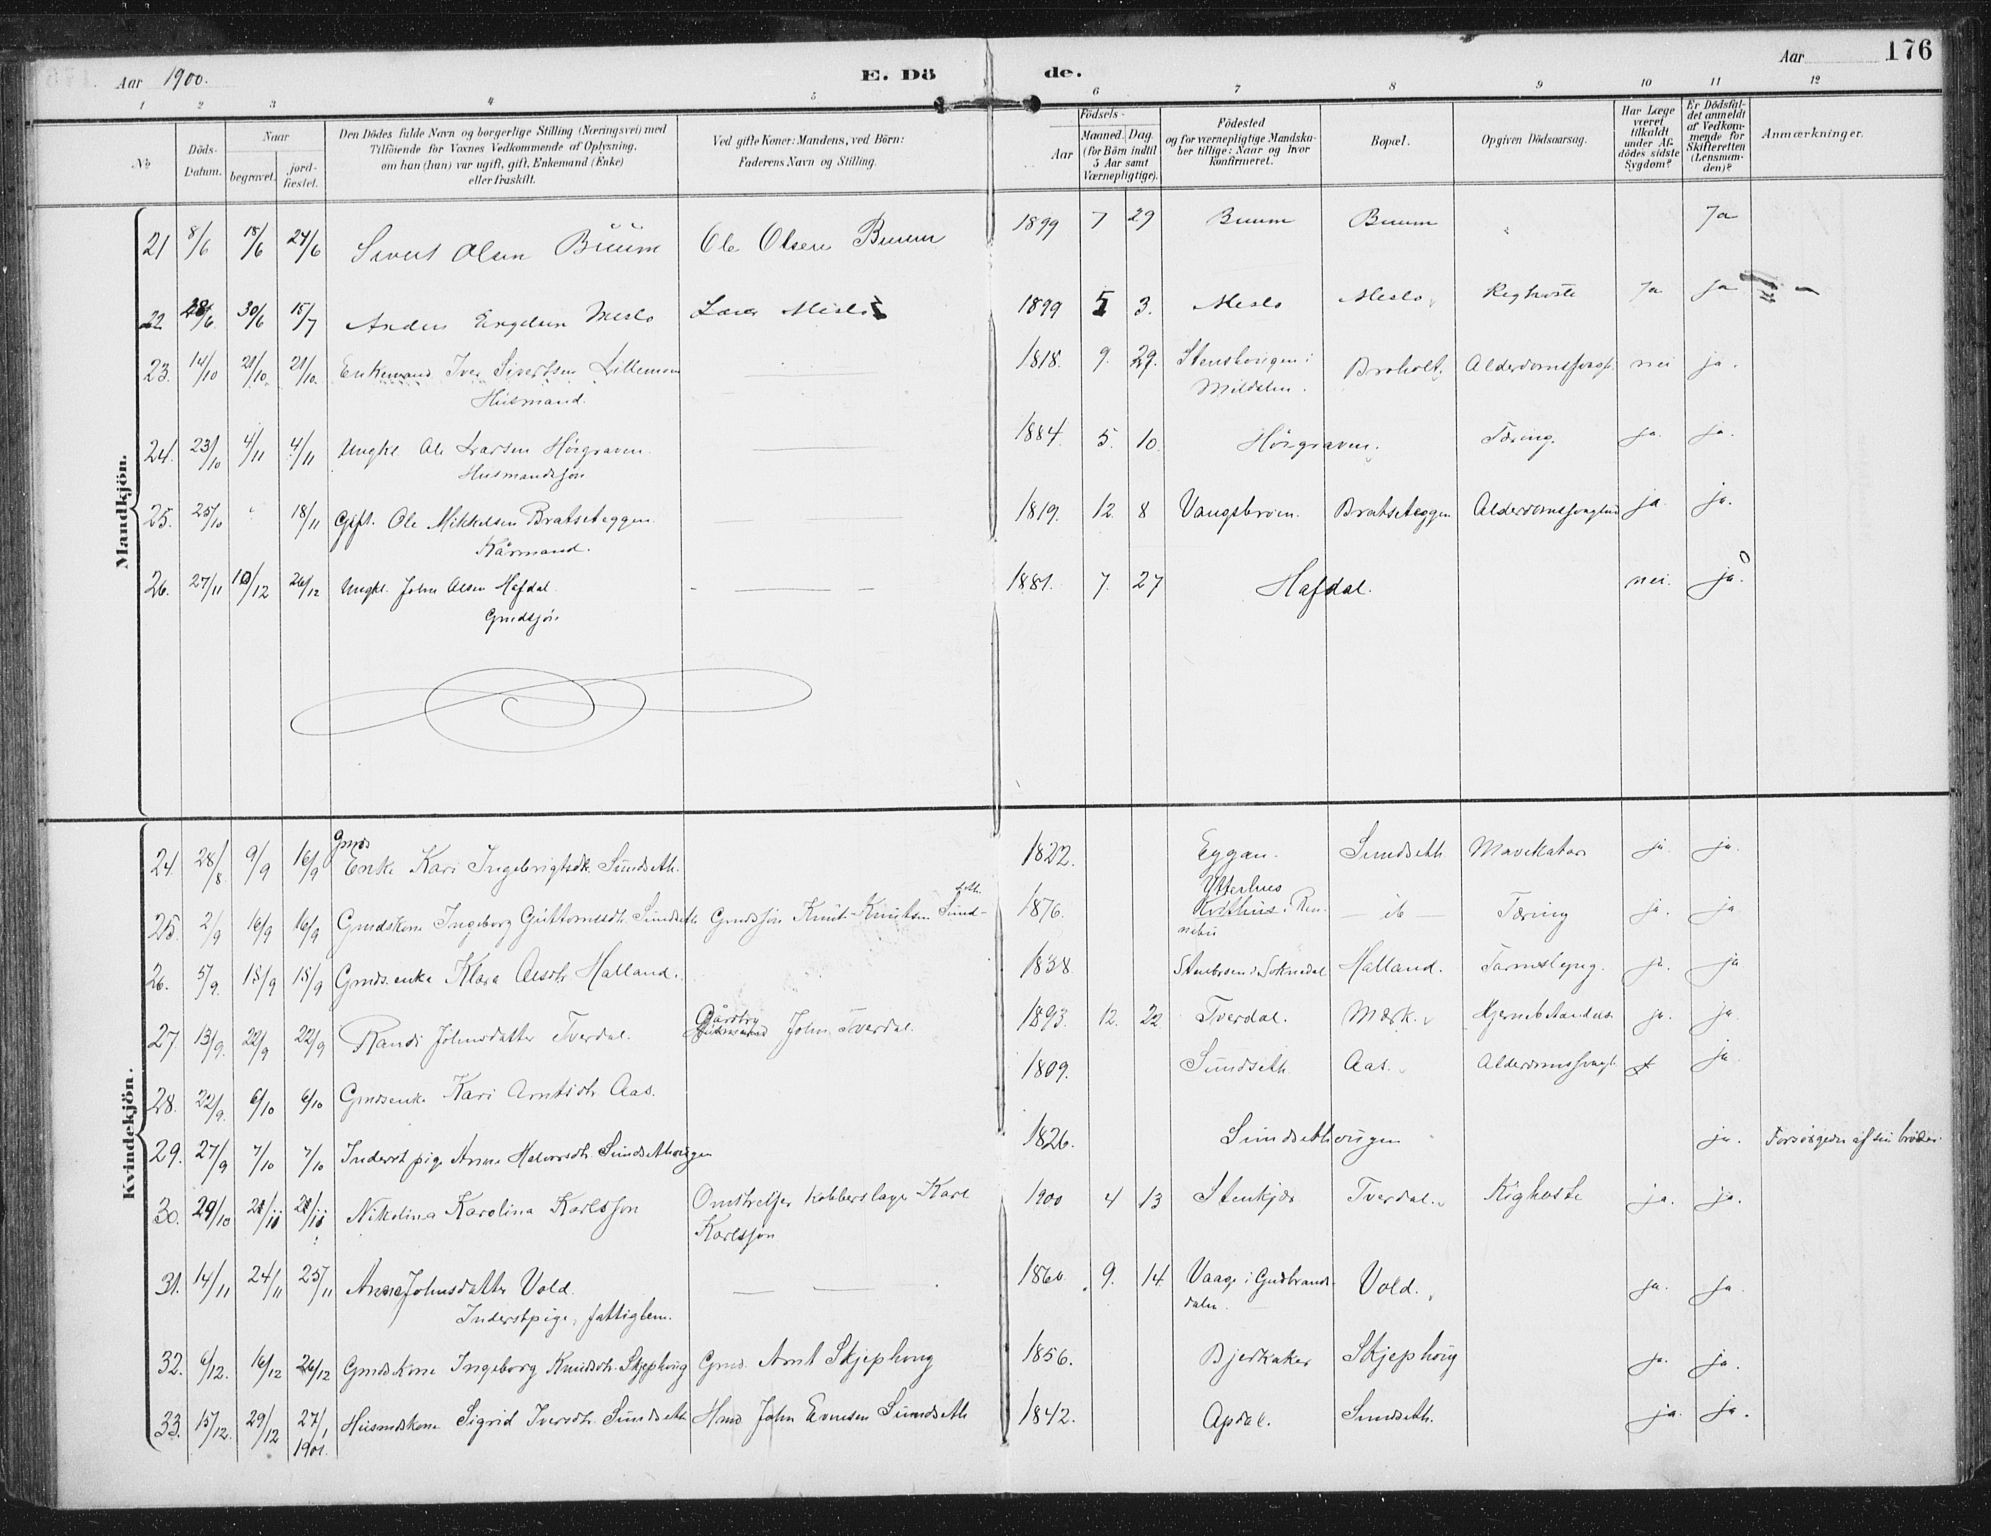 Aar 1900.
E. Dö de.
Aar 176
1 2 3 4 5 6 7 8 9 10 11 12
No
Döds-Datum.
Naar
begravet.
jordfæstet.
Den Dödes fulde Navn og borgerlige Stilling (Næringsvei) med
Tilföiende for Voxnes Vedkommende af Oplysning,
om han (hun) var ugift, gift, Enkemand (Enke)
eller fraskilt.
Ved gifte Koner: Mandens, ved Börn:
Faderens Navn og Stilling.
Födsels-
Aar
Maaned. Dag.
(for Börn indtil
5 Aar samt
Værnepligtige).
Födested
og for værnepligtige Mandskaber tillige: Naar og hvor
konfirmeret.
Bopæl.
Opgiven Dödsaarsag.
Har Læge
været
tilkaldt
under Afdödes sidste
Sygdom?
Er Dödsfaldet anmeldt
af Vedkommende for
Skifteretten
(Lensmanden)?
Anmærkninger.
Mandkjön.
21 8/6 18/6 24/6 Sivert Olsen Buum Ole Olsen Buum 1899 7 29 Buum Buum Ja
22 28/6 30/6 15/7 Anders Engelsen Meslo Lars Meslo 1899 5 3. Meslo Meslo Kighoste Ja ja
23. 14/10 21/10 21/10. Enkemand Iver Sivertsen Lillemoen 1818. 9. 29. Stenshougen i Broholt Alderdomssvagh. nei ja.
Husmand. Mildalen.
24. 23/10 4/11 4/11 Ungkl. Ole Larsen Hörgraven. 1884. 5. 10. Hörgraven. Tæring. ja. ja.
Husmandssön
25. 25/10 " 18/11 Gift. Ole Mikkelsen Bratseteggen. 1819. 12. 8 Vangsbroen. Bratseteggen Alderdomssvaghed ja ja.
Kårmand.
26. 27/11 10/12 26/12 Ungkl. John Olsen Hafdal. 1881. 7. 27 Hafdal. nei. ja.
Gmdssön
Kvindekjön.
24. 28/8 9/9 16/9 Gmds Enke Kari Ingebrigtsdt. Sundseth. 1822. Eggan. Sundseth Mavekatar ja ja.
25. 2/9 16/9 16/9 Gmdskone Ingeborg Guttormsdt. Sundseth Gmdssön Knut Knutsen Sundseth. 1876. Ytterhus i Rennebu do Tæring ja. ja
26. 5/9. 15/9 15/9 Gmds.enke Klara Olsdtr Halland. 1838. i Soknedal Halland. Tarmslyng. ja. ja
27. 13/9. 22/9 22/9 Randi Johnsdatter Tverdal. Gårdbr. John Tverdal. 1893. 12. 22 Tverdal. Mærk. Hjernebetændelse ja. ja.
28. 22/9. 6/10 6/10 Gmdsenke Kari Arntsdt. Aas. 1809. Sundseth. Aas. Alderdomssvagh. ja.
29. 27/9 7/10 7/10 Inderst pige Anne Halvorsdt. Sundsethougen 1826. Sundsethougen ja. Forsörgedes af sin broder.
30. 29/10 Nikolina Karolina Karlsson Omstreifer Kobberslager Karl 1900 4 13 Stenkjær Tverdal. Kighoste ja. ja.
Karlsson
31. 14/11 24/11 25/11 Anne Johnsdatter Vold. 1860. 9. 14 Vaage i Gudbrandsdalen Vold. ja. ja.
Inderstpige, fattiglem.
32. 6/12. 16/12 26/12 Gmdskone Ingeborg Knudsdt. Skjephoug Gmd. Arnt Skjephoug 1856. Bjerkaker Skjephoug ja. ja.
33. 15/12. 29/12 27/1 1901. Husmdskone Sigrid Iversdt. Sundseth Hmd John Evensen Sundseth 1842. Opdal. Sundseth. ja. ja.